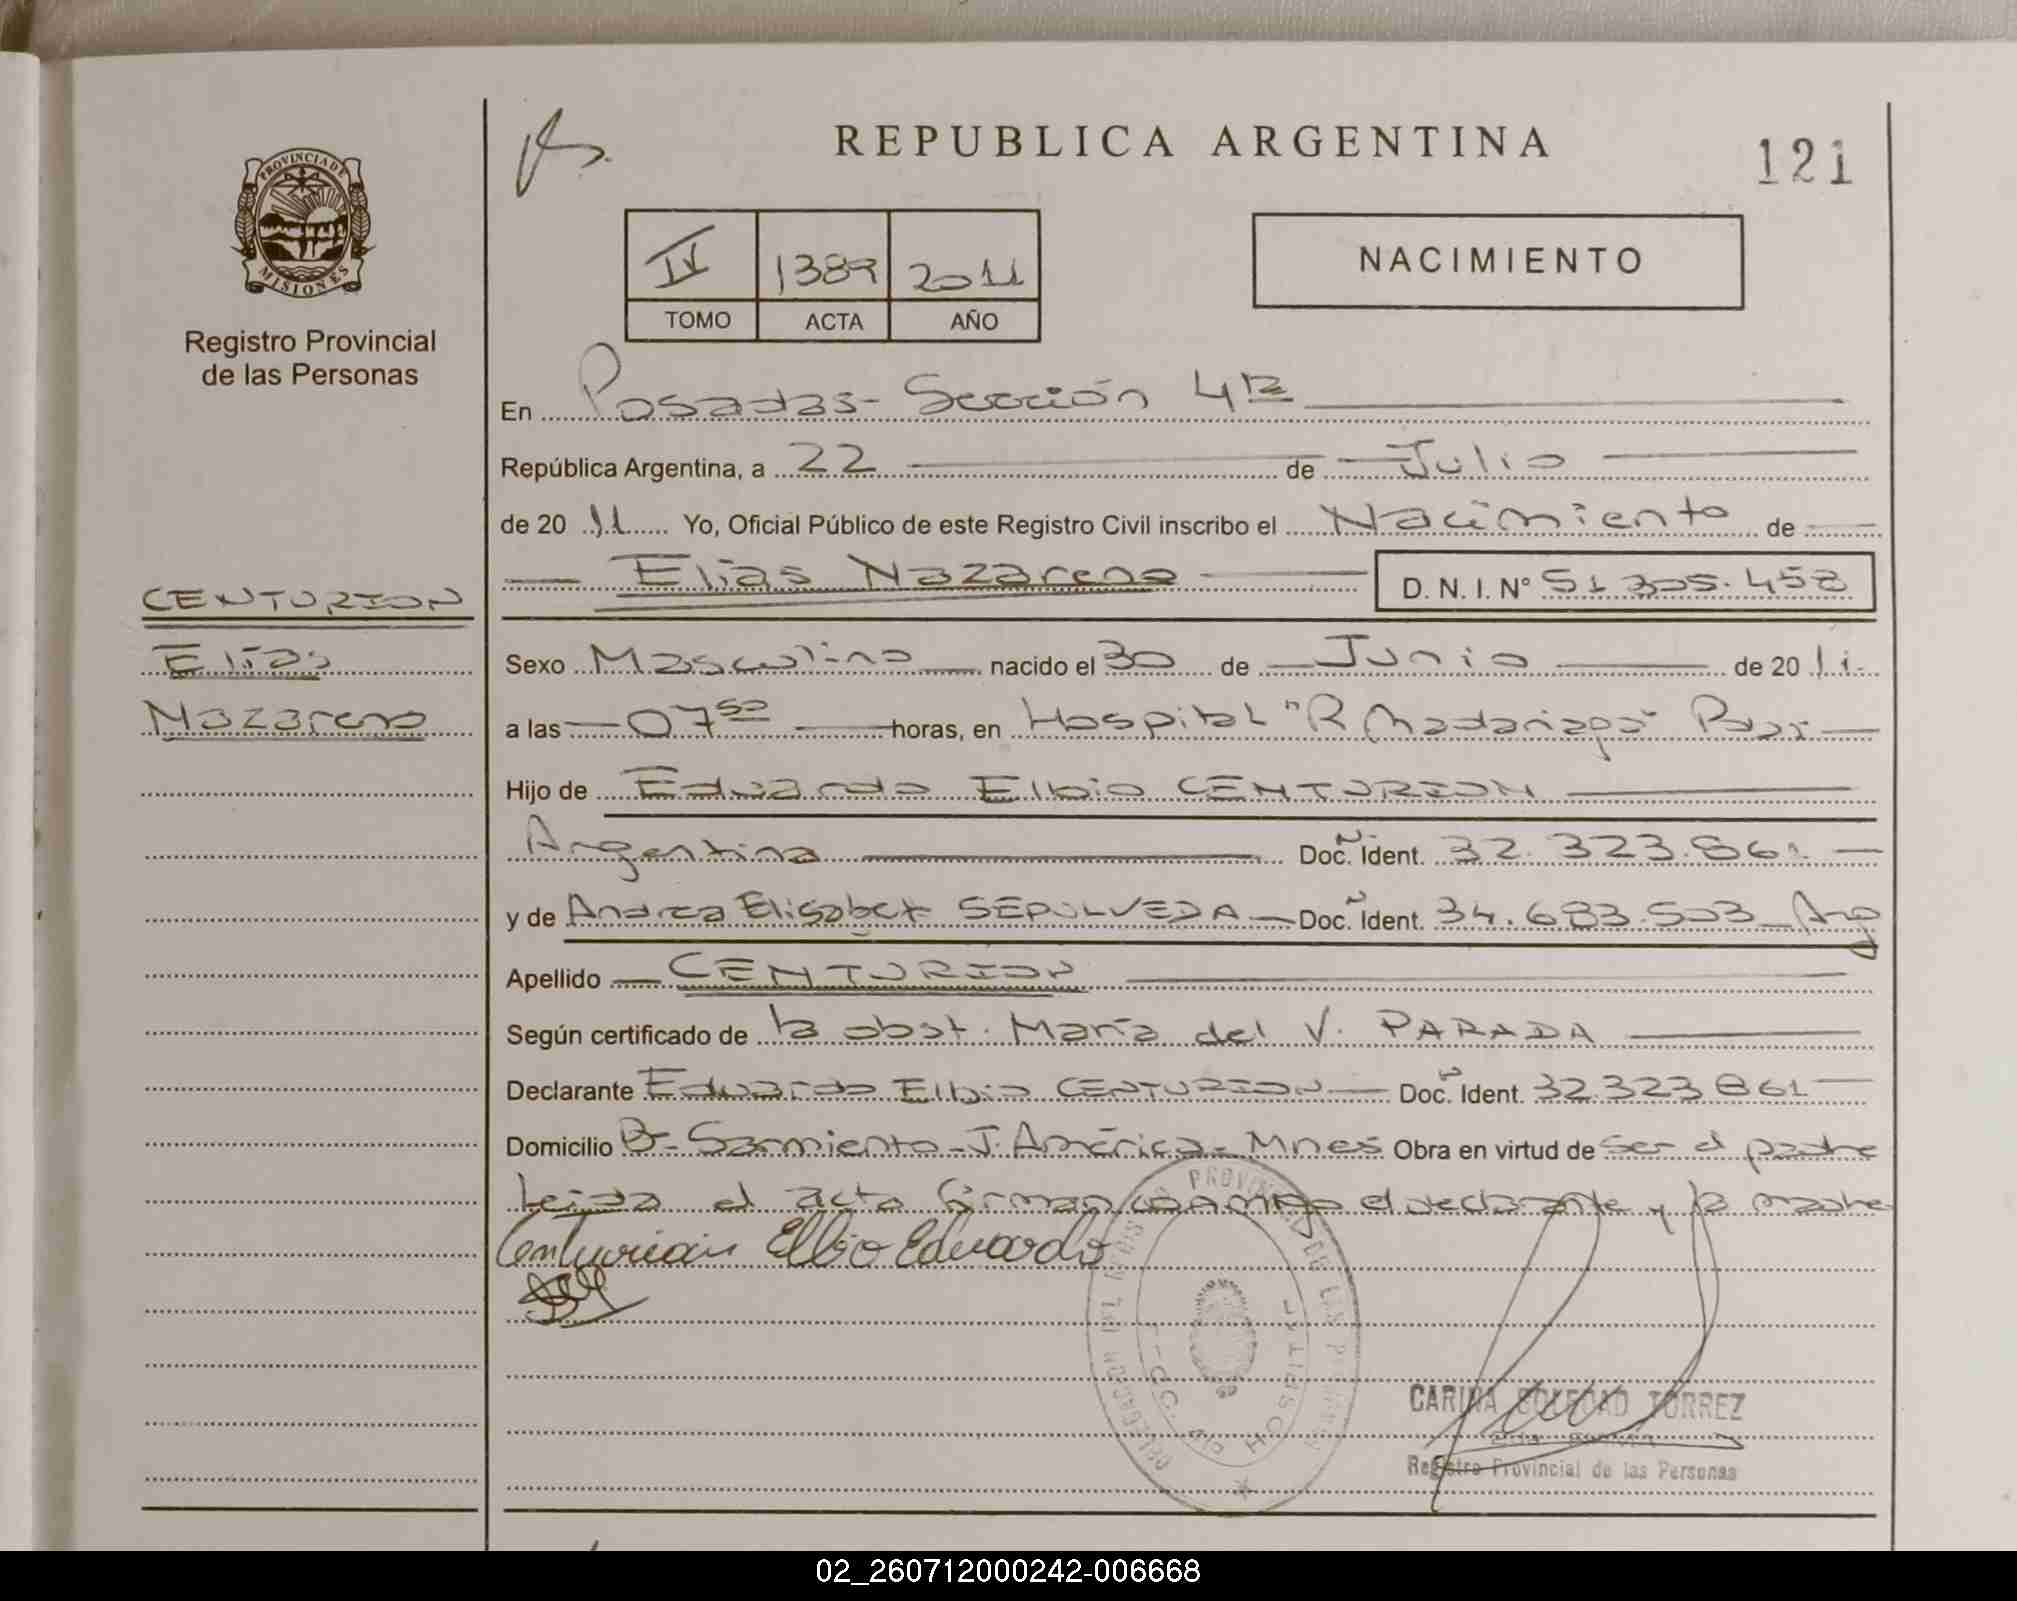 REPUBLICA ARGENTINA
121
PROVINCIA DE
MISIONES
Registro Provincial
de las Personas
IV 1389 2011
TOMO ACTA AÑO
NACIMIENTO
En Posadas - Sección 4ta
República Argentina, a 22 de Julio
de 2011 Yo, Oficial Público de este Registro Civil inscribo el Nacimiento de
Elías Nazareno D. N. I. N° 51.305.458
CENTURION
Elías
Nazareno
Sexo Masculino nacido el 30 de Junio de 2011
a las 07 50 horas, en Hospital "R Madariaga" Pdas
Hijo de Eduardo Elbio CENTURION
Argentina Doc. Ident. 32.323.861
y de Andrea Elisabet SEPULVEDA Doc. Ident. 34.683.503 Arg
Apellido CENTURION
Según certificado de la obst. María del V. PARADA
Declarante Eduardo Elbio CENTURION Doc. Ident. 32.323 861
Domicilio Bº Sarmiento - J. América - Mnes Obra en virtud de ser el padre
Leída el acta firman conmigo el declarante y la madre
Centurion Elbio Eduardo
PROVINCIAL DE LAS PERSONAS
DELEGACION DEL REGISTRO
HOSPITAL
CARINA SOLEDAD TORREZ
Registro Provincial de las Personas
02_260712000242-006668